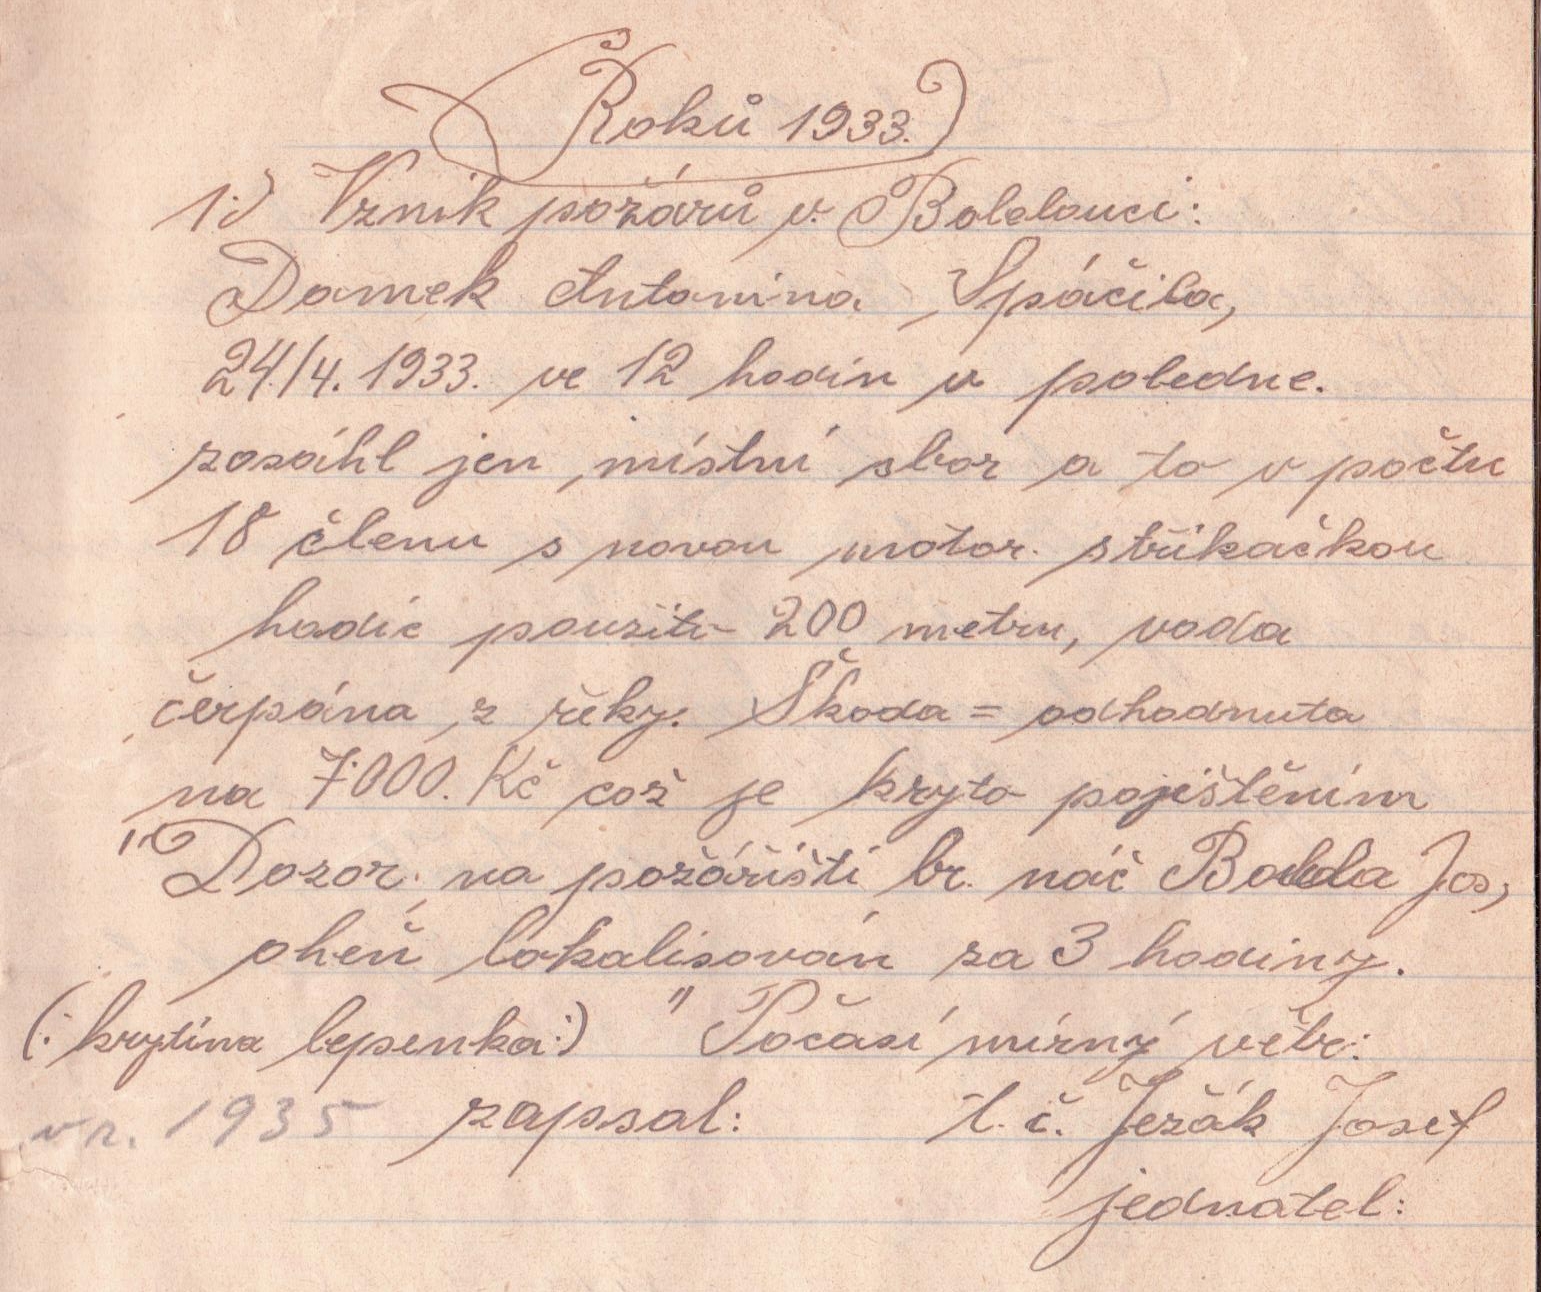 Roků 1933.
1.) Vznik požárů v. Bolelouci:
Domek Antonina Spáčila,
24./4. 1933. ve 12 hodin v poledne.
zasáhl jen místní sbor a to v počtu
18 členu s novou motor. střikačkou
hadic použito 200 metru, voda
čerpána z řěky. Škoda = odhodnuta
na 7.000. Kč což je kryto pojištěnim
"Dozor na požářišti br. náč Jos,
oheň lokalisován za 3 hodiny.
(: krytina lepenka :) " Počasí mírný větr:
v r. 1935 zapsal: t. č. Ježák Josef
jednatel: